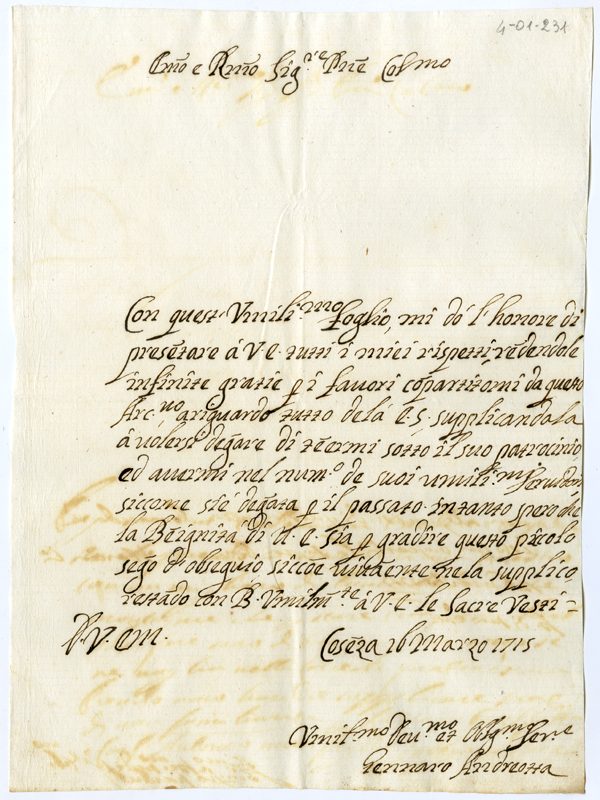 4-01-231
Emo e Rmo Sig.re Prne Colmo
Con quest Vmili.mo foglio, mi dó l'honore di
presetare á V. E. tutti i miei rispetti redendole
infinite gratie p i favori copartitomi da questo
Arc.vo ariguardo tutto dela E. S. supplicandola
á volersi degare di teermi sotto il suo patrocinio
ed avermi nel num.o de suoi vmili.mi servidori
siccome s'é degata p il passato. intanto spero che
la Beignitá di V. E. sia p gradire questo picolo
sego d'obsequio siccoe vivaente nela supplico
restado con B. Vmilm.te á V. E. le Sacre Vesti=
D. V. Em.
Coseza 16 Marzo 1715
Vmil.mo Deu.mo et Oblig.mo Ser.e
Gennaro Andreotta